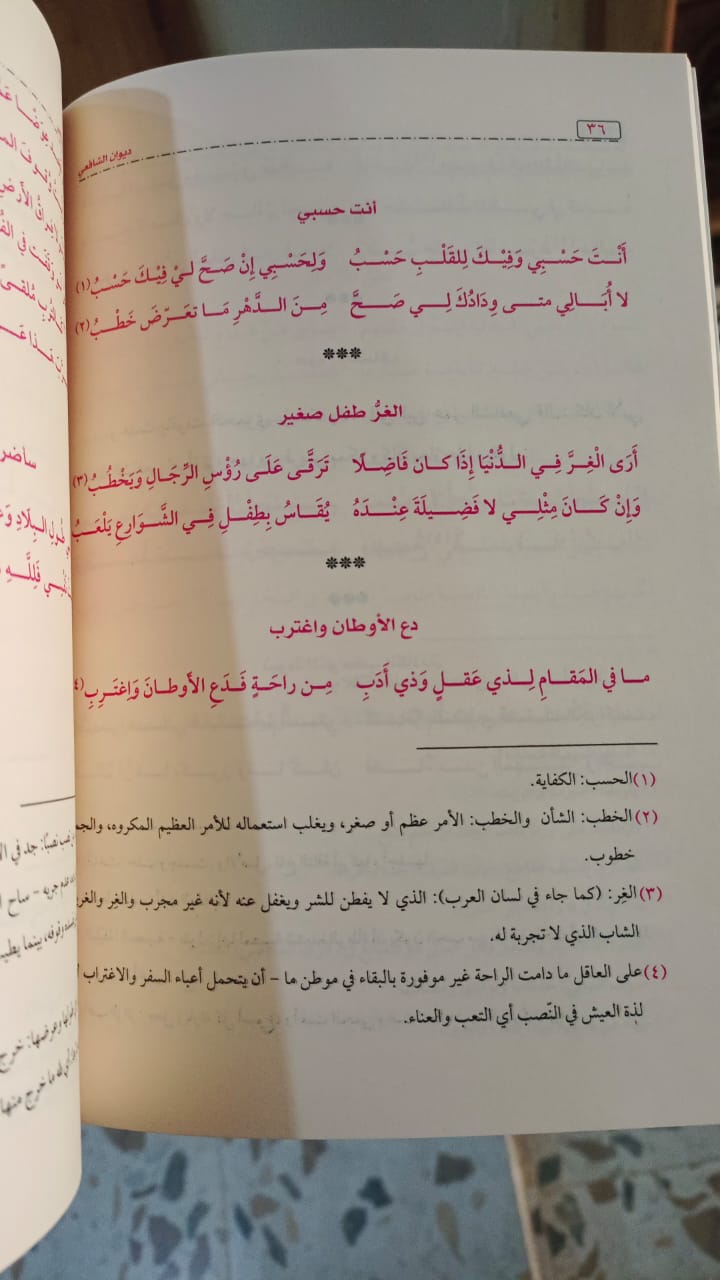 ٣٦
ديوان الشافعي
أنت حسبي
أَنْتَ حَسْبِي وَفِيْكَ لِلقَلْبِ حَسْبُ وَلِحَسْبِي إِنْ صَحَّ لِيْ فِيْكَ حَسْبُ(١)
لا أُبَالِي متى وِدَادُكَ لِي صَحَّ مِنَ الدَّهْرِ مَا تَعَرّضَ خَطْبُ(٢)
***
الغرُّ طفل صغير
أَرَى الْغِرَّ فِي الدُّنْيَا إِذَا كان فَاضِلًا تَرَقَّى عَلَى رُؤْسِ الرِّجَالِ وَيَخْطُبُ(٣)
وَإِنْ كَانَ مِثْلِي لا فَضِيلَةَ عِنْدَهُ يُقَاسُ بِطِفْلٍ فِي الشَّوَارِعِ يَلْعَبُ
***
دع الأوطان واغترب
ما في المَقامِ لِذي عَقلٍ وَذي أَدَبِ مِن راحَةٍ فَدَعِ الأَوطانَ وَاِغتَرِبِ(٤
(١)الحسب: الكفاية.
(٢)الخطب: الشأن والخطب: الأمر عظم أو صغر، ويغلب استعماله للأمر العظيم المكروه، والجم
خطوب.
(٣)الغِر: (كما جاء في لسان العرب): الذي لا يفطن للشر ويغفل عنه لأنه غير مجرب والغِر والغر
الشاب الذي لا تجربة له.
(٤)على العاقل ما دامت الراحة غير موفورة بالبقاء في موطن ما – أن يتحمل أعباء السفر والاغتراب
لذة العيش في النّصب أي التعب والعناء.